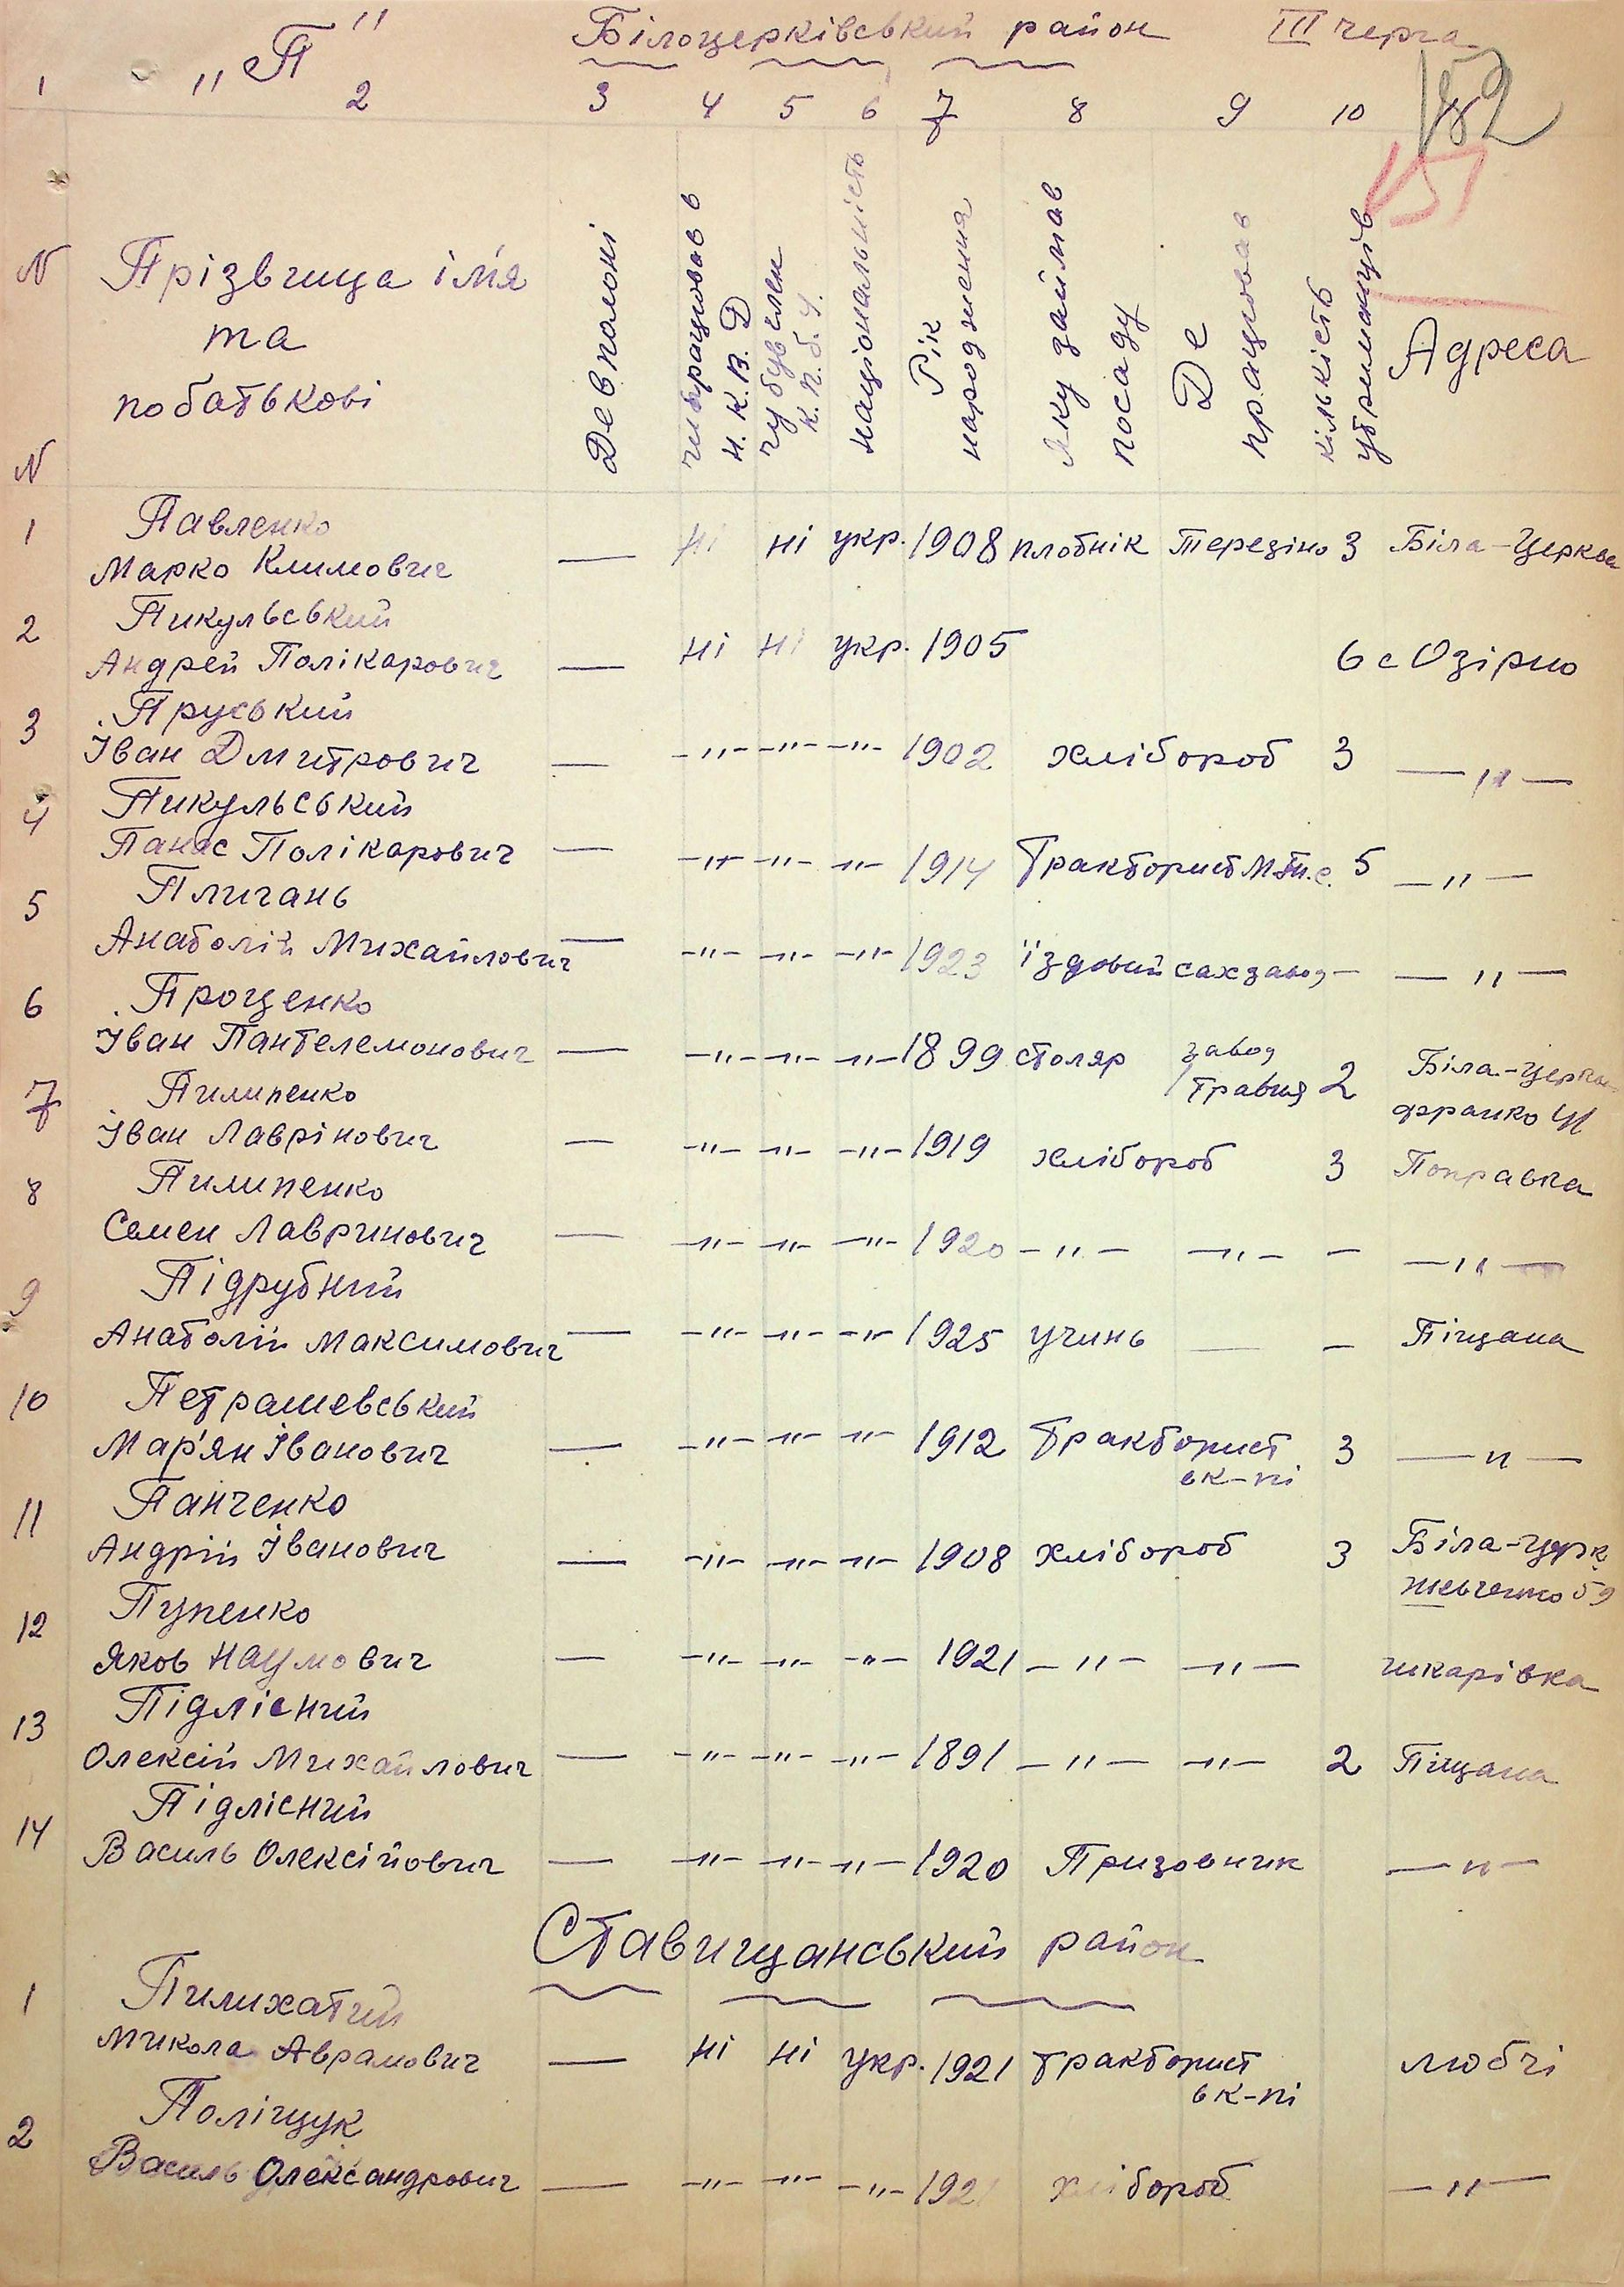 „П" Білоцерківський район III черга
1 2 3 4 5 6 7 8 9 10 182
151
N N Прізвища ім'я та побатькові Де в полоні чи працював в Н.К.В.Д чи був член К.П.б.У. національність Рік народження Яку займав посаду Де працював кількість утриманців Адреса
1 Павленко
Марко Климович — ні ні укр. 1908 плотнік Терезіно 3 Біла-Церква
2 Пикульський
Андрей Полікарович — ні ні укр. 1905 6 с Озірно
3 Пруський
Іван Дмитрович — -"- -"- -"- 1902 хлібороб 3 —"—
4 Пикульський
Панас Полікарович — -"- -"- -"- 1914 Тракторист М.т.с. 5 —"—
5 Плигань
Анатолій Михайлович — -"- -"- -"- 1923 їздовий сахзавод — —"—
6 Проценко
Іван Пантелемонович — -"- -"- -"- 1899 столяр завод 1 Травня 2 Біла-Церква
франко 41
7 Пилипенко
Іван Лаврінович — -"- -"- -"- 1919 хлібороб 3 Поправка
8 Пилипенко
Семен Лавринович — -"- -"- -"- 1920 -"- -"- — —"—
9 Підрубний
Анатолій Максимович — -"- -"- -"- 1925 учинь — — Піщана
10 Петрашевський
Мар'ян Іванович — -"- -"- -"- 1912 Тракторист 3 —"—
в к-пі
11 Панченко
Андрій Іванович — -"- -"- -"- 1908 хлібороб 3 Біла-Церк
шевченко 59
12 Пупенко
Яков Наумович — -"- -"- -"- 1921 -"- -"- шкарівка
13 Підлісний
Олексій Михайлович — -"- -"- -"- 1891 -"- -"- 2 Піщана
14 Підлісний
Василь Олексійович — -"- -"- -"- 1920 Призовник —"—
Ставищанський район
1 Пилихатий
Микола Аврамович — ні ні укр. 1921 тракторист любчі
в к-пі
2 Поліщук
Василь Олександрович — -"- -"- -"- 1921 хлібороб —"—